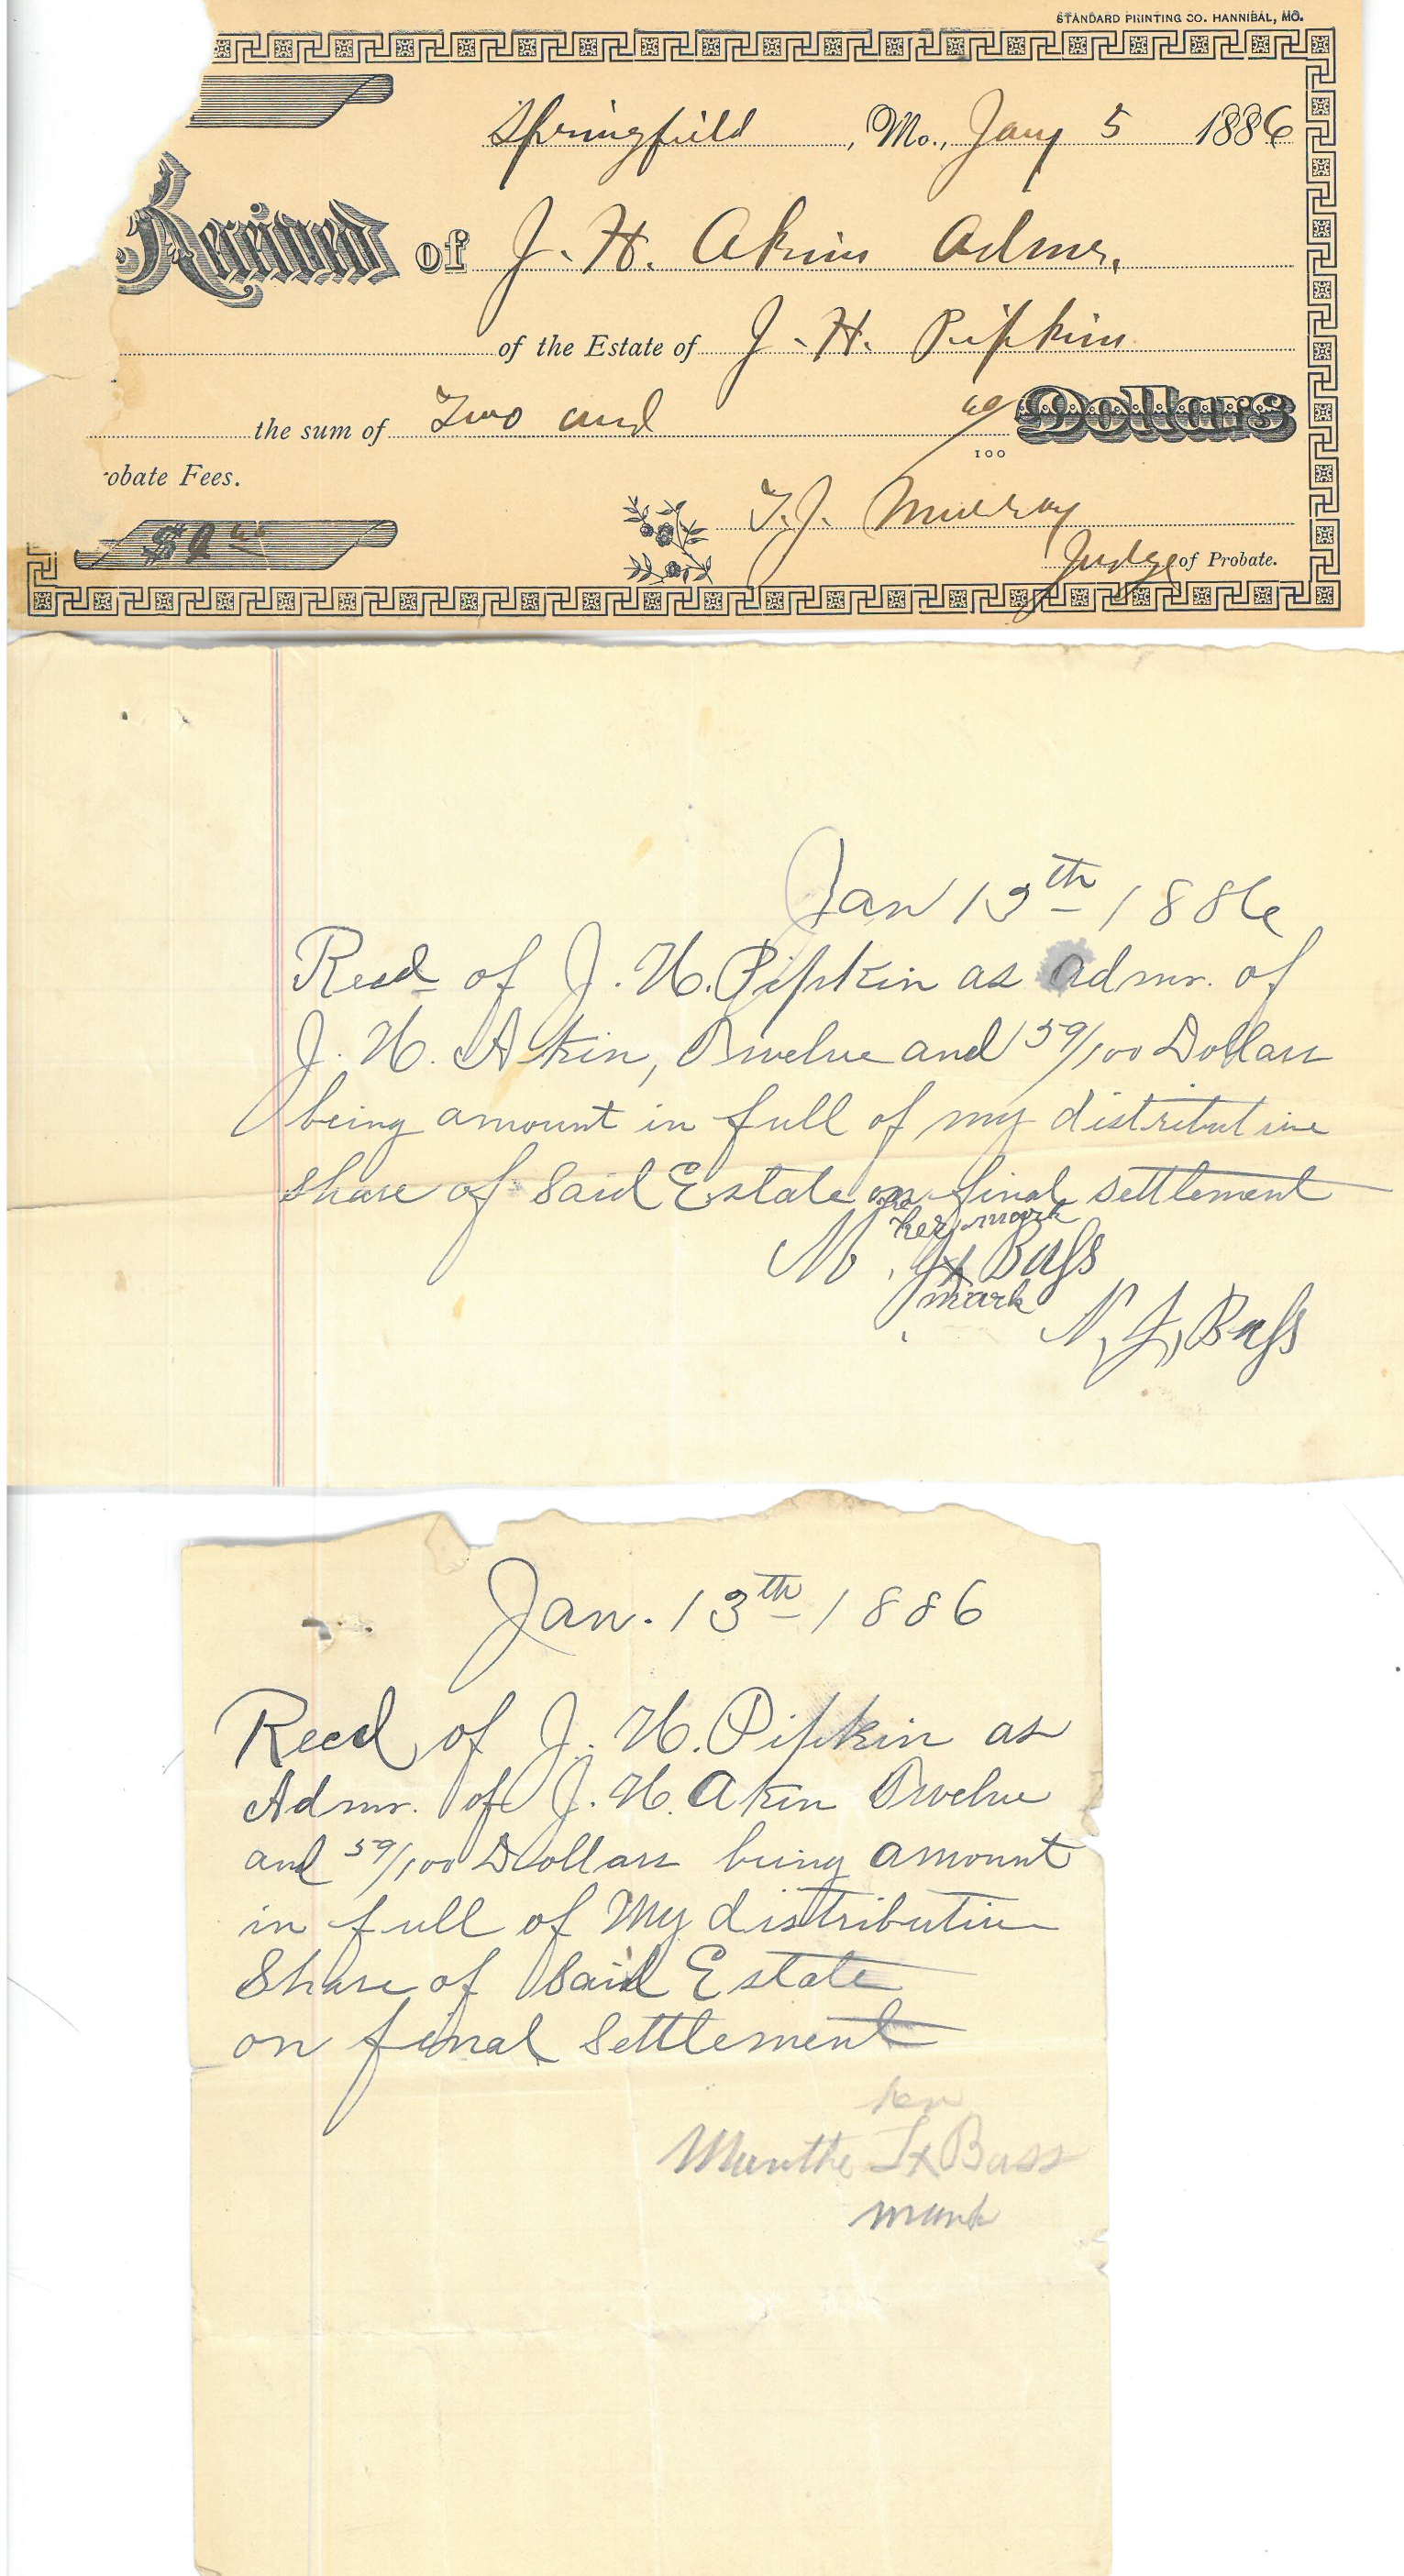 STANDARD PRINTING CO. HANNIBAL, MO.
Springfield, Mo., Jany 5 1886
Received of J. H. Akin Admr.
of the Estate of J. H. Pipkin
the sum of Two and 60/100 Dollars
obate Fees.
$2 60
T. J. Murray
Judge of Probate.
Jan 13th 1886
Recd of J. H. Pipkin as Admr. of
J. H. Akin, Twelve and 59/100 Dollars
being amount in full of my distributive
share of said Estate on final settlement
her mark
M. J. x Bass
mark
N. J. Bass
Jan. 13th 1886
Recd of J. H. Pipkin as
Admr. of J. H. Akin Twelve
and 59/100 Dollars being amount
in full of My distributive
Share of Said Estate
on final Settlement
her
x Bass
mark